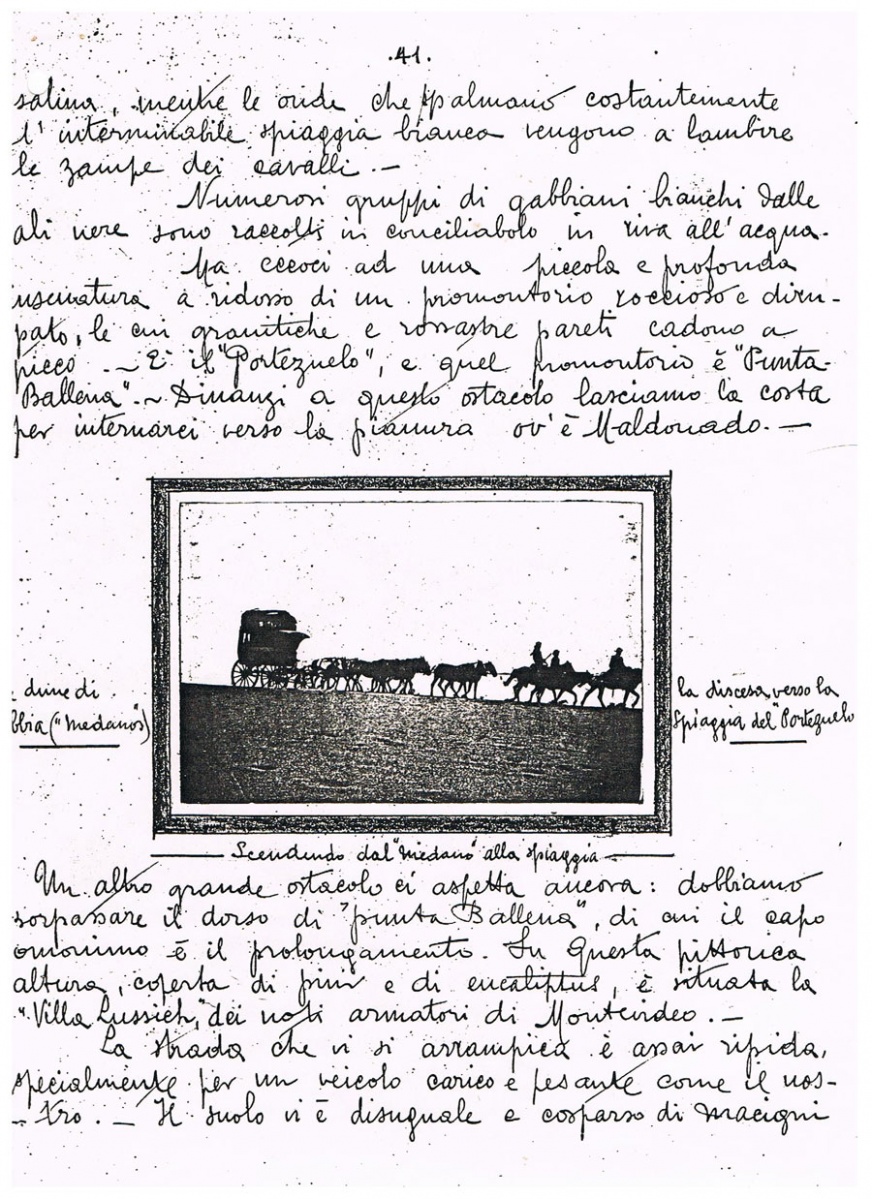 .41.
salina, mentre le onde che spalmano costantemente
l'interminabile spiaggia bianca vengono a lambire
le zampe dei cavalli. —
Numerosi gruppi di gabbiani bianchi dalle
ali nere sono raccolti in conciliabolo in riva all'acqua.
Ma eccoci ad una piccola e profonda
insenatura a ridosso di un promontorio roccioso e diru-
pato, le cui granitiche e rossastre pareti cadono a
picco. — E' il "Portezuelo", e quel promontorio è "Punta-
Ballena". ~ Dinanzi a questo ostacolo lasciamo la costa
per internarci verso la pianura ov'è Maldonado. —
dune di
bbia ("medanos")
la discesa verso la
spiaggia del "Portezuelo
Scendendo dal "medano" alla spiaggia
Un altro grande ostacolo ci aspetta ancora: dobbiamo
sorpassare il dorso di "punta Ballena", di cui il capo
omonimo è il prolungamento. Su questa pittorica
altura, coperta di pini e di eucaliptus, è situata la
"Villa Lussich", dei noti armatori di Montevideo. —
La strada che vi si arrampica è assai ripida,
specialmente per un veicolo carico e pesante come il nos-
tro. — Il suolo vi è disuguale e cosparso di macigni